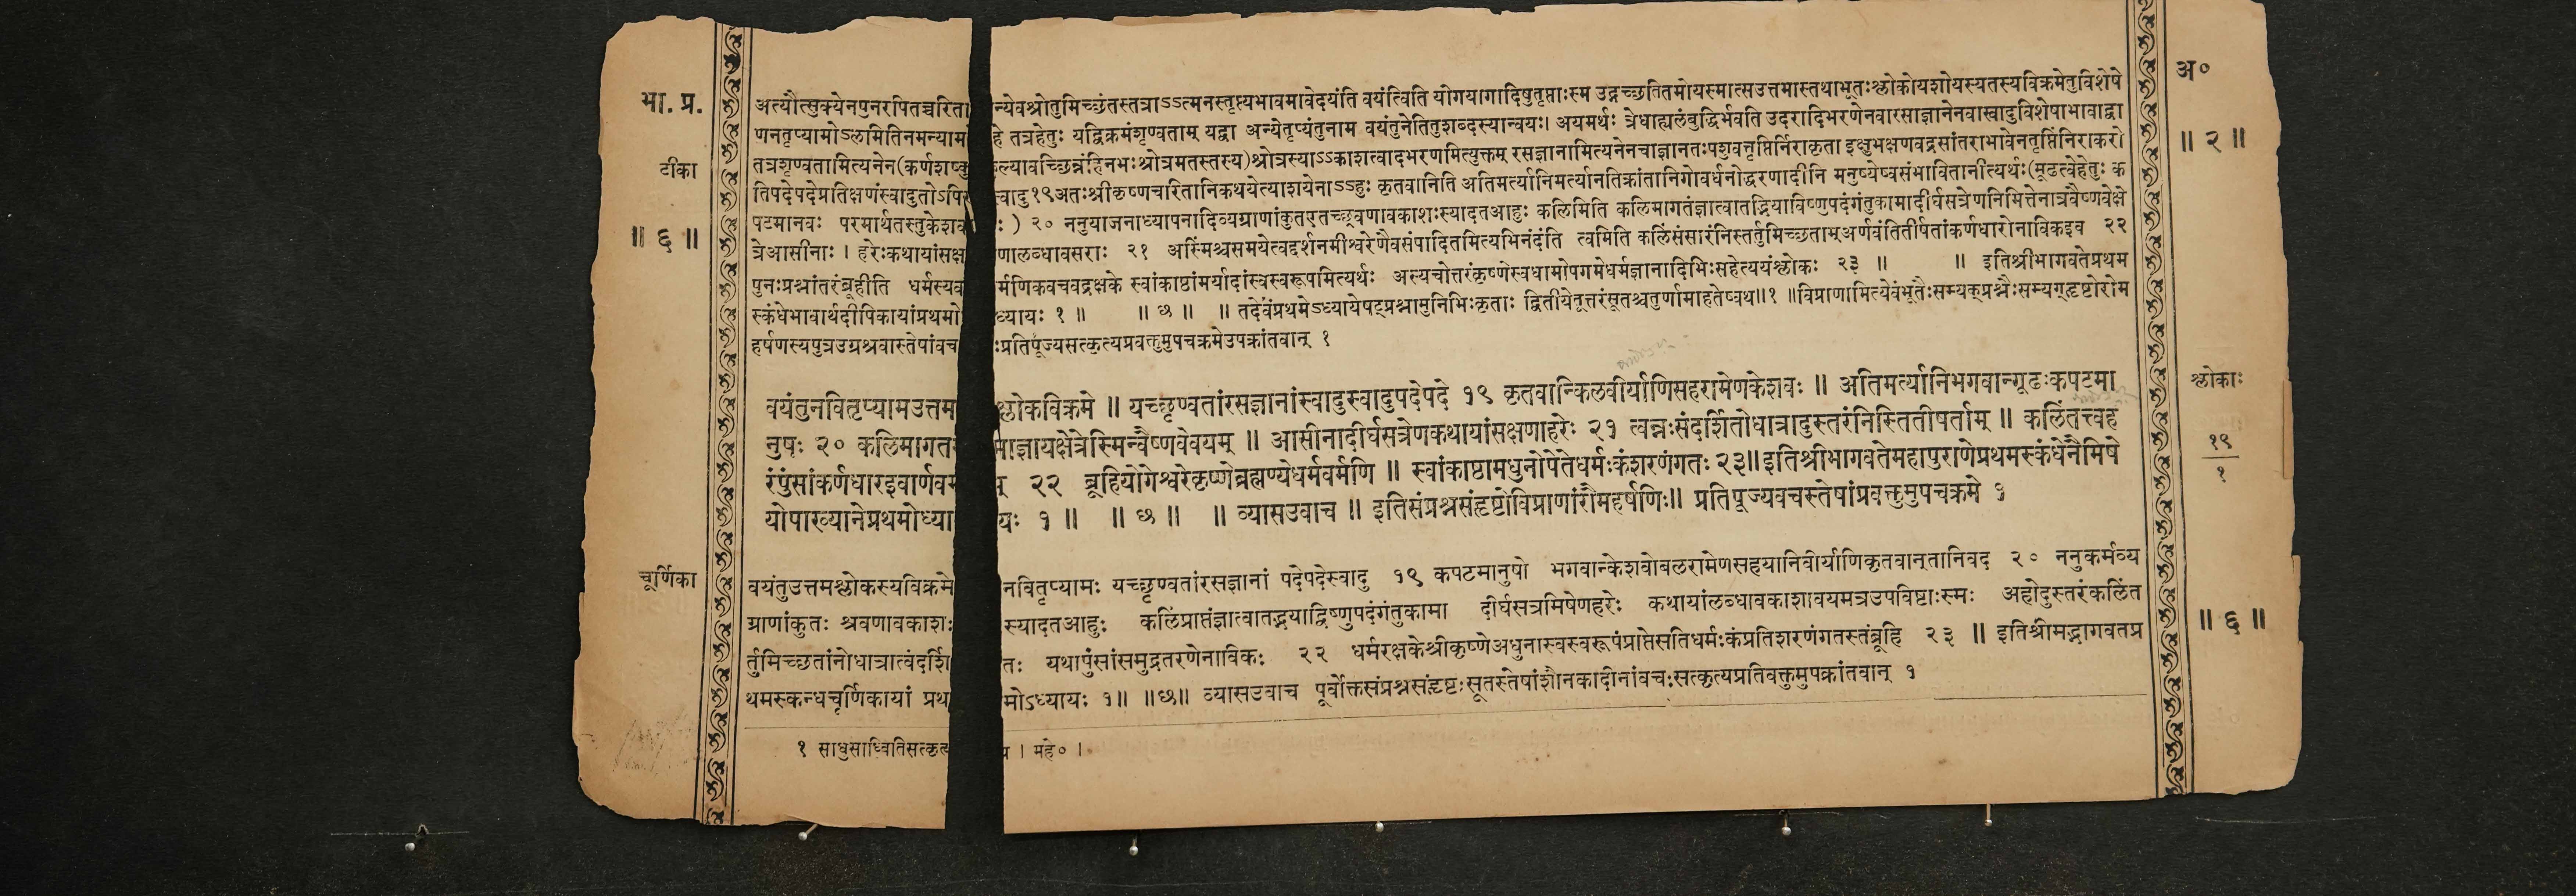 भा. प्र.
टीका
॥ ६ ॥
अत्यौत्सुक्येनपुनरपितच्चरिता न्येवश्रोतुमिच्छंतस्तत्राऽऽत्मनस्तृप्त्यभावमावेदयंति वयंत्विति योगयागादिषुतृप्ताःस्म उद्गच्छतितमोयस्मात्सउत्तमास्तथाभूतःश्लोकोयशोयस्यतस्यविक्रमेतुविशेषे
णनतृप्यामोऽलमितिनमन्याम हे तत्रहेतुः यद्विक्रमंशृण्वताम् यद्वा अन्येतृप्यंतुनाम वयंतुनेतितुशब्दस्यान्वयः। अयमर्थः त्रेधाह्यलंबुद्धिर्भवति उदरादिभरणेनवारसाज्ञानेनवास्वादुविशेषाभावाद्वा
तत्रशृण्वतामित्यनेन(कर्णशष्कु ल्यावच्छिन्नंहिनभःश्रोत्रमतस्तस्य)श्रोत्रस्याऽऽकाशत्वादभरणमित्युक्तम् रसज्ञानामित्यनेनचाज्ञानतःपशुवत्तृप्तिर्निराकृता इक्षुभक्षणवद्रसांतराभावेनतृप्तिंनिराकरो
तिपदेपदेप्रतिक्षणंस्वादुतोऽपि स्वादु१९अतःश्रीकृष्णचरितानिकथयेत्याशयेनाऽऽहुः कृतवानिति अतिमर्त्यानिमर्त्यानतिक्रांतानिगोवर्धनोद्धरणादीनि मनुष्येष्वसंभावितानीत्यर्थः(मूढत्वेहेतुः क
पटमानवः परमार्थतस्तुकेशव ः ) २० ननुयाजनाध्यापनादिव्यग्राणांकुतएतच्छ्रवणावकाशःस्यादतआहुः कलिमिति कलिमागतंज्ञात्वातद्भियाविष्णुपदंगंतुकामादीर्घसत्रेणनिमित्तेनात्रवैष्णवेक्षे
त्रेआसीनाः । हरेःकथायांसक्ष णालब्धावसराः २१ अस्मिंश्चसमयेत्वद्दर्शनमीश्वरेणैवसंपादितमित्यभिनंदंति त्वमिति कलिंसंसारंनिस्तर्तुमिच्छताम्अर्णवंतितीर्षतांकर्णधारोनाविकइव २२
पुनःप्रश्नांतरंब्रूहीति धर्मस्यव र्मणिकवचवद्रक्षके स्वांकाष्ठांमर्यादांस्वस्वरूपमित्यर्थः अस्यचोत्तरंकृष्णेस्वधामोपगमेधर्मज्ञानादिभिःसहेत्ययंश्लोकः २३ ॥ ॥ इतिश्रीभागवतेप्रथम
स्कंधेभावार्थदीपिकायांप्रथमो ध्यायः १ ॥ ॥ छ ॥ ॥ तदेवंप्रथमेऽध्यायेषट्प्रश्नामुनिभिःकृताः द्वितीयेतूत्तरंसूतश्चतुर्णामाहतेष्वथ॥१ ॥विप्राणामित्येवंभूतैःसम्यक्प्रश्नैःसम्यग्हृष्टोरोम
हर्षणस्यपुत्रउग्रश्रवास्तेषांवच ःप्रतिपूज्यसत्कृत्यप्रवक्तुमुपचक्रमेउपक्रांतवान् १
वयंतुनवितृप्यामउत्तम श्लोकविक्रमे ॥ यच्छृण्वतांरसज्ञानांस्वादुस्वादुपदेपदे १९ कृतवान्किलवीर्याणिसहरामेणकेशवः ॥ अतिमर्त्यानिभगवान्गूढःकपटमा
नुषः २० कलिमागत माज्ञायक्षेत्रेस्मिन्वैष्णवेवयम् ॥ आसीनादीर्घसत्रेणकथायांसक्षणाहरेः २१ त्वन्नःसंदर्शितोधात्रादुस्तरंनिस्तितीषर्ताम् ॥ कलिंतत्त्वह
रंपुंसांकर्णधारइवार्णव म् २२ ब्रूहियोगेश्वरेकृष्णेब्रह्मण्येधर्मवर्मणि ॥ स्वांकाष्ठामधुनोपेतेधर्मःकंशरणंगतः २३॥इतिश्रीभागवतेमहापुराणेप्रथमस्कंधेनैमिषे
योपाख्यानेप्रथमोध्या यः १ ॥ ॥ छ ॥ ॥ व्यासउवाच ॥ इतिसंप्रश्नसंहृष्टोविप्राणांरौमहर्षणिः॥ प्रतिपूज्यवचस्तेषांप्रवक्तुमुपचक्रमे १
चूर्णिका
वयंतुउत्तमश्लोकस्यविक्रमे नवितृप्यामः यच्छृण्वतांरसज्ञानां पदेपदेस्वादु १९ कपटमानुषो भगवान्केशवोबलरामेणसहयानिवीर्याणिकृतवान्तानिवद २० ननुकर्मव्य
ग्राणांकुतः श्रवणावकाशः स्यादतआहुः कलिंप्राप्तंज्ञात्वातद्भयाद्विष्णुपदंगंतुकामा दीर्घसत्रमिषेणहरेः कथायांलब्धावकाशावयमत्रउपविष्टाःस्मः अहोदुस्तरंकलिंत
र्तुमिच्छतांनोधात्रात्वंदर्शि तः यथापुंसांसमुद्रतरणेनाविकः २२ धर्मरक्षकेश्रीकृष्णेअधुनास्वस्वरूपंप्राप्तेसतिधर्मःकंप्रतिशरणंगतस्तंब्रूहि २३ ॥ इतिश्रीमद्भागवतप्र
थमस्कन्धचूर्णिकायां प्रथ मोऽध्यायः १॥ ॥छ॥ व्यासउवाच पूर्वोक्तसंप्रश्नसंहृष्टःसूतस्तेषांशौनकादीनांवचःसत्कृत्यप्रतिवक्तुमुपक्रांतवान् १
१ साधुसाध्वितिसत्कृत्य । महे० ।
अ०
॥ २ ॥
श्लोकाः
१९
१
॥ ६ ॥